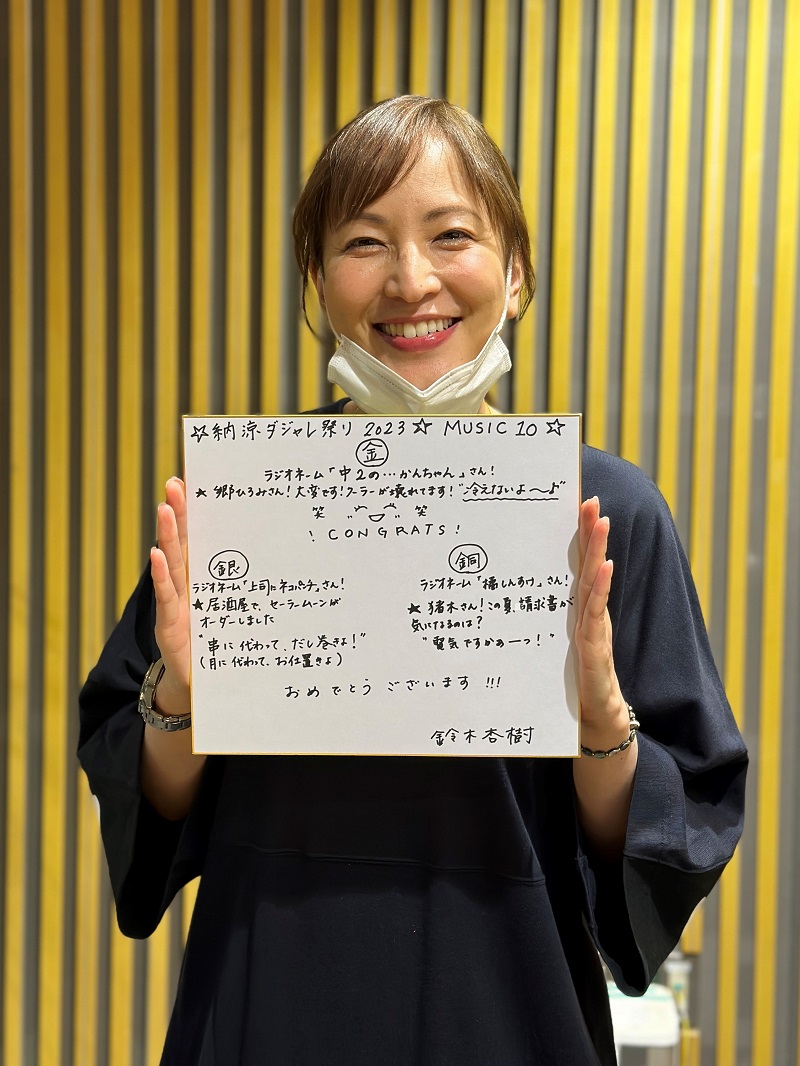 ☆納涼ダジャレ祭り 2023☆ MUSIC 10☆
金
ラジオネーム「中2の…かんちゃん」さん!
★ 郷ひろみさん!大変です!クーラーが壊れてます!"冷えないよ〜♪"
笑 笑
! CONGRATS!
銀
ラジオネーム「上司にネコパンチ」さん!
★居酒屋で、セーラームーンが
オーダーしました
"串に代わって、だし巻きよ!"
(月に代わって、お仕置きよ)
銅
ラジオネーム「橘しんすけ」さん!
★ 猪木さん!この夏、請求書が
気になるのは?
"電気ですかぁーっ!"
おめでとうございます!!!
鈴木杏樹